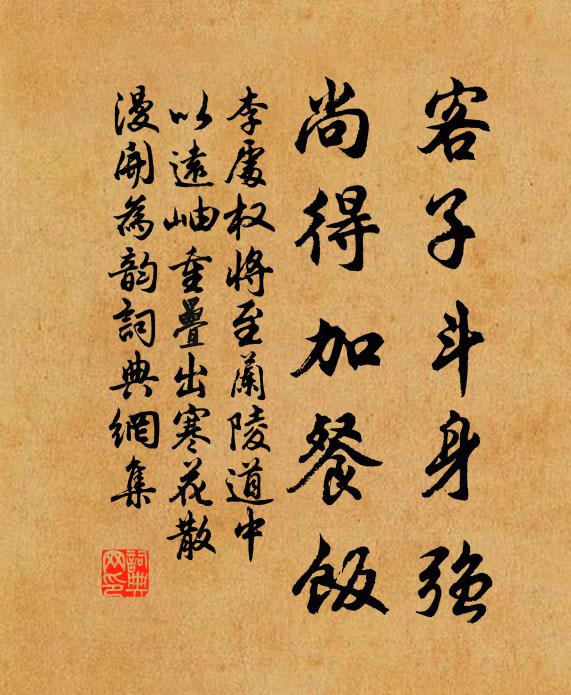 客子斗身强
尚得加餐飯
李處权將至蘭陵道中
以遠岫重疊出寒花散
漫開為韵詞典網集
詞典
网印